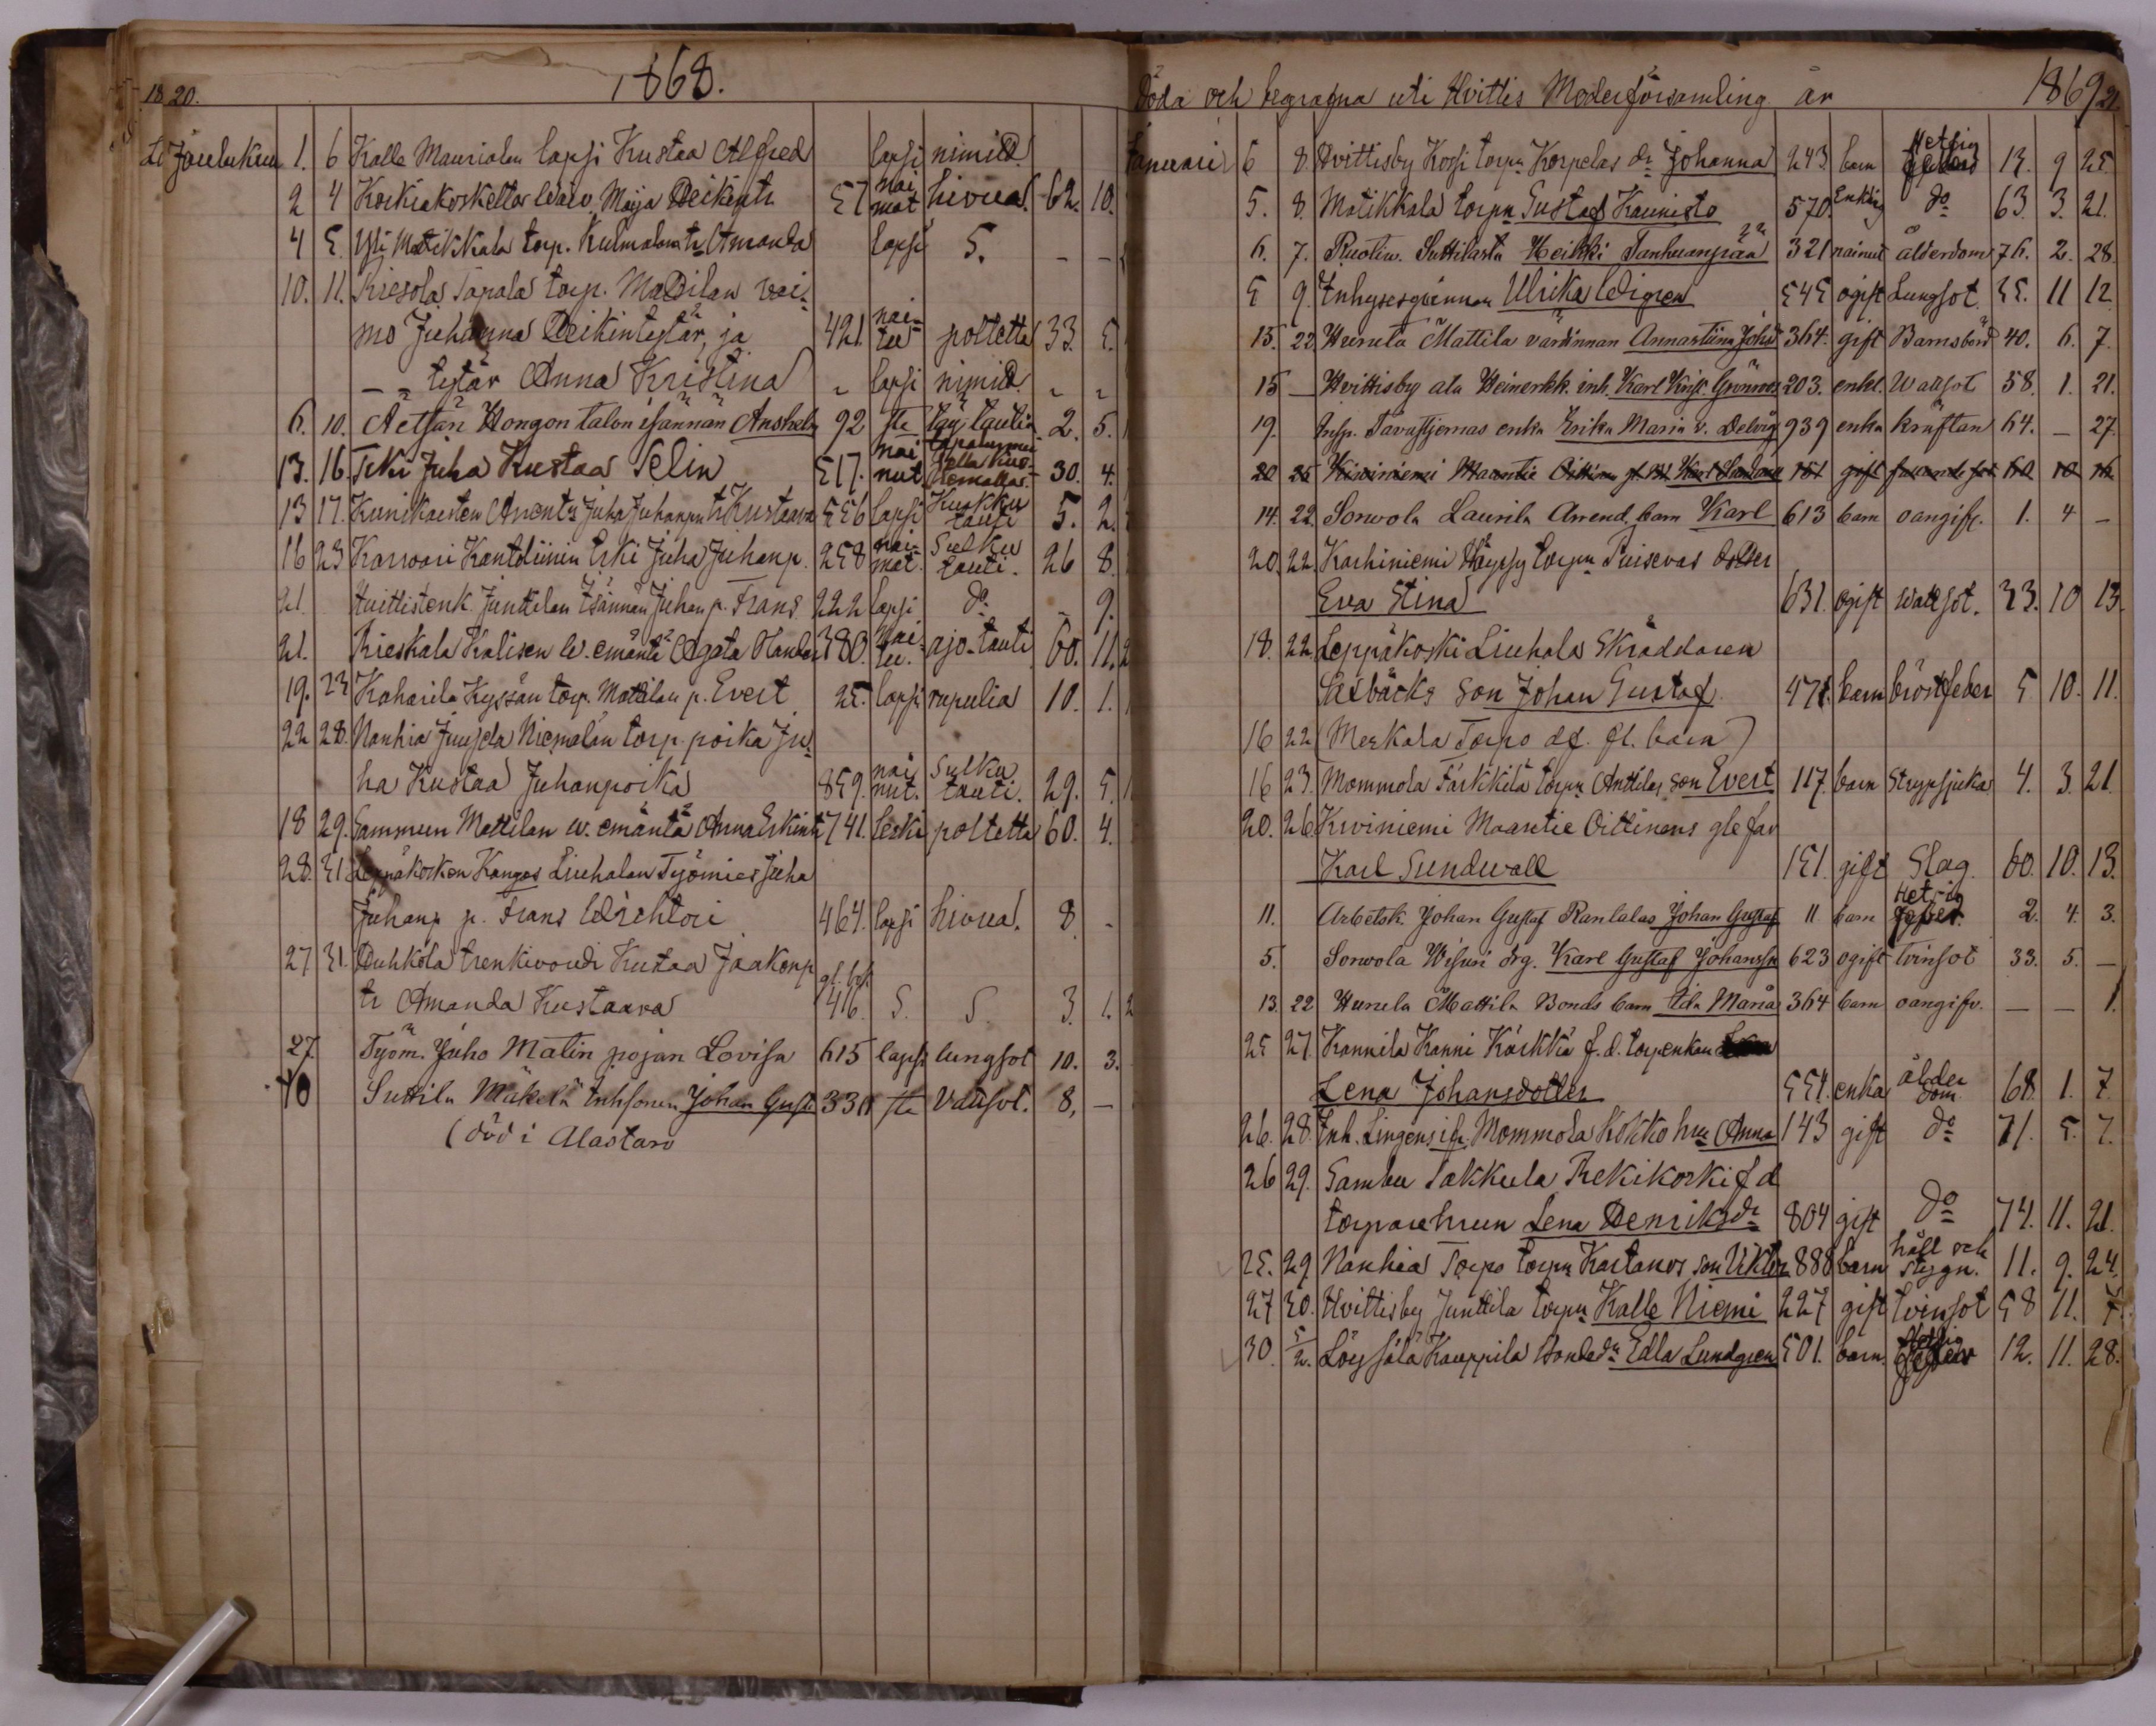 1820.
1868.
Joulukuu 1. 6 Kalle Maurialan lapsi Kustaa Alfred lapsi nimitt.
2 4 Koskiakoskeltas Maija Heikintr 57 nai mat hivua. 62. 10.
4 5. Yli Matikkala torp. Kulmalan tr Amanda lapsi 5. - -
10. 11. Riesola Tapala torp. Mattilan vai-
mo Juhanna Heikintytär, ja 421. nai- tu poltetta 33. 5.
- " - tytär Anna Kristina " lapsi nimitt. " "
6. 10. Äetsän Hongon talon isännän Anshelm 92 2. 5.
13. 16. Juha Kustaa Selin 517. nai nut 30. 4.
13 17. Juha Juhanpn tr Kustaava 556 lapsi Kuukku tauti 5. 2.
16 23 Karwari Erki Juha Juhanp. 258 nai- mat. Sulku tauti. 26 8.
21. Huittistenk. Junttilan Isännän Juhan p. Frans 222 lapsi do - 9.
21. Rieskala Kalisen w. emäntä Agata 380. nai tu. ajo-tauti 60. 11. 2
19. 23 Kaharila Kyssän torp. Mattilan p. Evert 25. lapsi rupulia 10. 1.
22 28. Nanhia Juusela Niemelän torp. poika Ju-
ha Kustaa Juhanpoika 859. nai nut. Sulku tauti. 29. 5.
18 29. Sammun Mattilan w. emäntä Anna Erkintr 741. Leski poltetta 60. 4.
28. 31. Leppäkosken Kangas Liuhalan Työmies Juha
Juhanp p. Frans Wichtori 464. lapsi hivua. 8. -
27 31. Huhkola trenkivoudi Kustaa Jaakonp
tr Amanda Kustaava gl. bok 416. S. S. 3. 1. 2
27. Työm. Juho Matin pojan Lovisa 615 lapsi lungsot 10. 3.
10 Suttila Mäkelä Inhsonen Johan Gust. 330 Vattsot. 8, -
(död i Alastaro
Döda och begrafna uti Hvittis Moderförsamling år 1869 21.
Januari 6 8. Hvittisby Kossi torpn Korpelas dr Johanna 243. barn Hetsig feber 13. 9 25.
5. 8. Matikkala torpn Gustaf Kaunisto 570. Enkling do 63. 3. 21.
6. 7. Ruotiw. Suttilasta Heikki Tanhuanpää 321 nainut ålderdom 76. 2. 28.
5 9. Inhysesqvinnan Ulrika Wigren 545 ogift Lungsot 35. 11 12
15. 22. Hurula Mattila värdinnan Annastiina Johsd 364. gift Barnsbörd 40. 6. 7.
15 - Hvittisby ala Heinerkk. inh. Karl Krist. Grönroos 203. enkl. Wattsot 58. 1. 21.
19. Insp. Tavastjernas enka Erika Maria v. Delwig 939 enka kräftan 64. - 27.
20 25 Kiviniemi Maantie Karl Sundwall 151 gift 60 10 16
14. 22. Sorwola Laurila Arrend. barn Karl 613 barn oangifv. 1. 4 -
20. 22. Karhiniemi Häyssy torpn Puisevas dotter
Eva Stina 631. ogift Wattsot. 33. 10 13.
18. 22. Leppäkoski Liuhala Skräddaren
Saxbäcks son Johan Gustaf 471. barn bröstfeber 5 10. 11.
16 22 (Meskala Torpo df. fl. barn)
16 23. Mommola Färkkilä torpn Anttilas son Evert 117. barn Strypsjuka 4. 3. 21.
20. 26. Kiviniemi Maantie Oittinens gle far
Karl Sundwall 151. gift Slag. 60. 10. 13.
11. Arbetsk. Johan Gustaf Rantalas Johan Gustaf 11 barn Hetsig feber. 2. 4. 3.
5. Sorwola Wesuri drg. Karl Gustaf Johansson 623 ogift tvinsot 33. 5. -
13. 22 Hurula Mattila Bonds barn Ida Maria 364 barn oangifv. - - 1.
25 27. Kannila Kanni Kärkkä f. d. torpenkan
Lena Johansdotter 554. enka ålder dom. 68. 1. 7.
26. 28. Inh. Lingens Mommola Kokko hru Anna 143 gift do 71. 5. 7.
26 29. Sambu Takkula Rekikoski f d
torparehrun Lena Henriksdr 804 gift do 74. 11. 21.
25. 29. Nanhia Torpo torpn Kastanos son Viktor 888 barn håll och styggn. 11. 9. 24.
27 30. Hvittisby Junttila torpn Kalle Niemi 227 gift tvinsot 58 11. 7.
30. 5/2. Löysälä Kauppila Bondedr Edla Lundgren 501. barn. Hetsig feber 12. 11. 28.